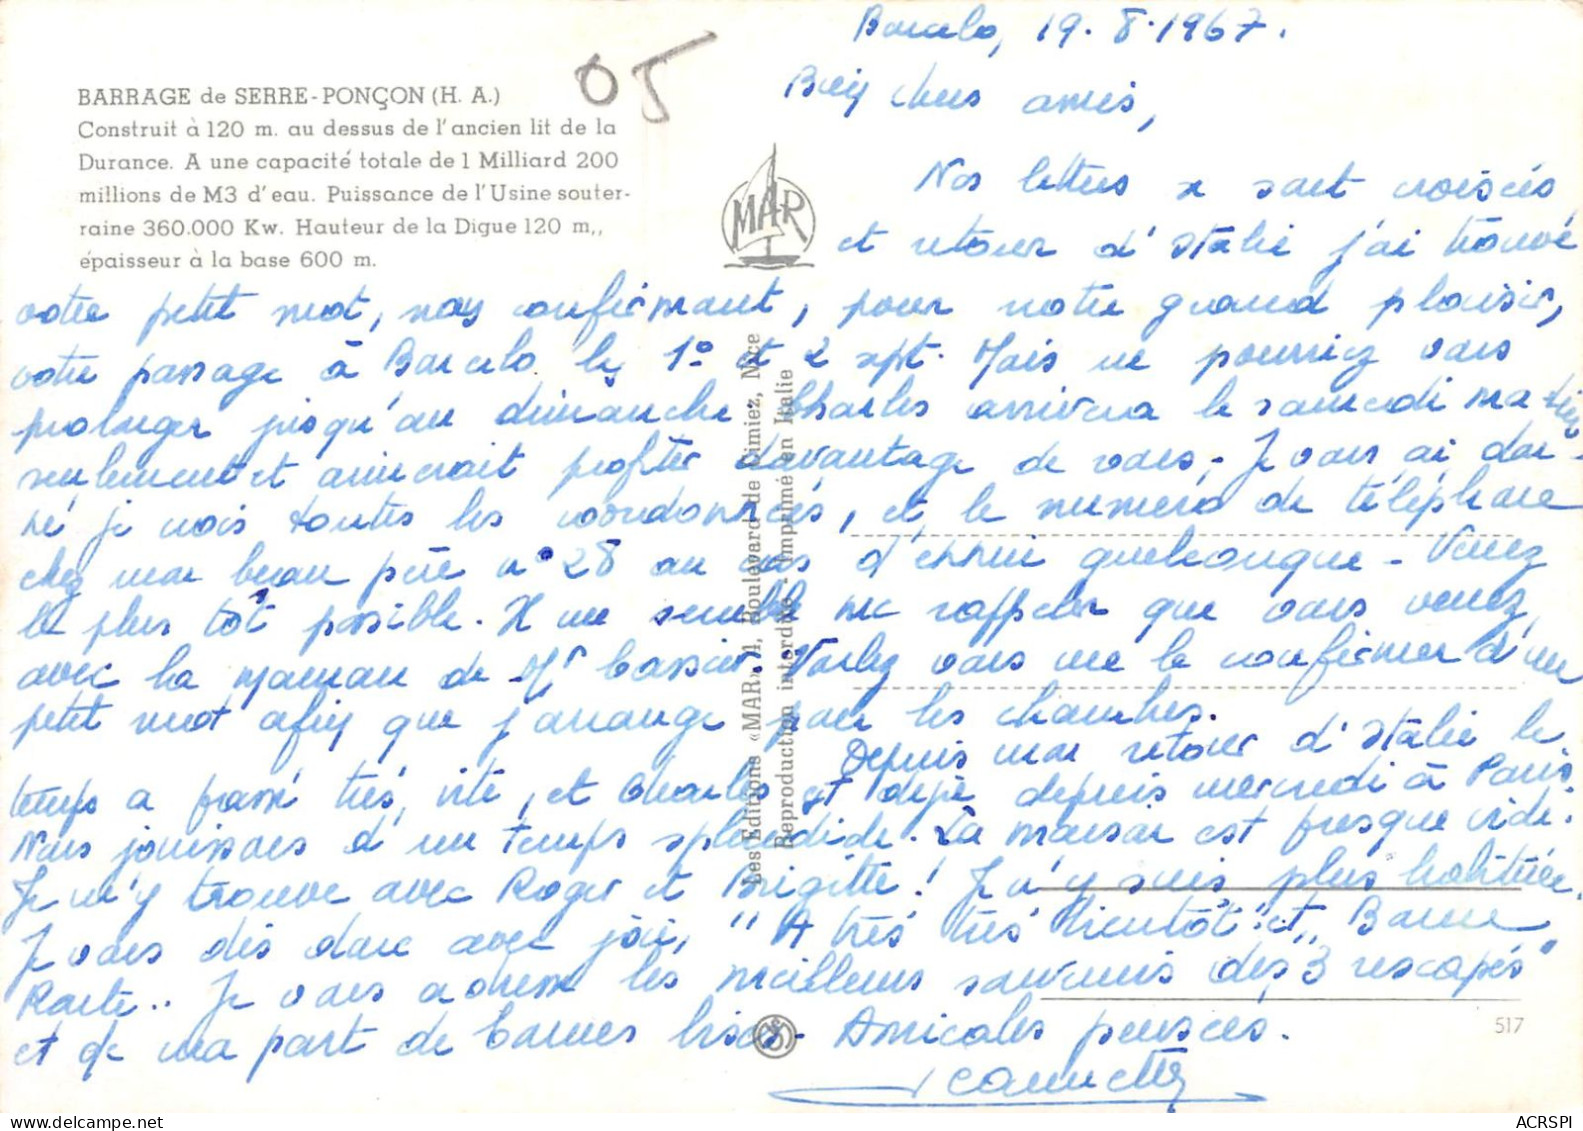 BARRAGE de SERRE-PONÇON (H. A.)
Construit à 120 m. au dessus de l'ancien lit de la
Durance. A une capacité totale de 1 Milliard 200
millions de M3 d'eau. Puissance de l'Usine souter-
raine 360.000 Kw. Hauteur de la Digue 120 m,,
épaisseur à la base 600 m.
05
MAR
Les Editions «MAR» 4, Boulevard de Cimiez, Nice
Reproduction interdite - Imprimé en Italie
Barcelo, 19.8.1967.
Bien chers amis,
Nos lettres se sont croisées
et retour d'Italie j'ai trouvé
votre petit mot, nous confirmant, pour notre grand plaisir,
votre passage à Barcelo les 1º et 2 sept. Mais ne pourriez vous
prolonger jusqu'au dimanche. Charles arrivera le samedi matin
seulement et aimerait profiter davantage de vous. Je vous ai don-
né je crois toutes les coordonnées, et le numéro de téléphone
chez mon beau père nº 28 au cas d'ennui quelconque - Venez
le plus tôt possible. Il me semble me rappeler que vous venez
avec la maman de Mr Cassier. Voulez vous me le confirmer d'un
petit mot afin que j'arrange pour les chambres.
Depuis mon retour d'Italie le
temps a passé très vite, et Charles est déjà depuis mercredi à Paris.
Nous jouissons d'un temps splendide. La maison est presque vide.
Je m'y trouve avec Roger et Brigitte! Je n'y suis plus habituée.
Je vous dis donc avec joie, "A très très bientôt" et "Bonne
Route".. Je vous adresse les meilleurs souvenirs des 3 rescapés"
et de ma part de bonnes bises. Amicales pensées.
Jeannette
517
ACRSPI